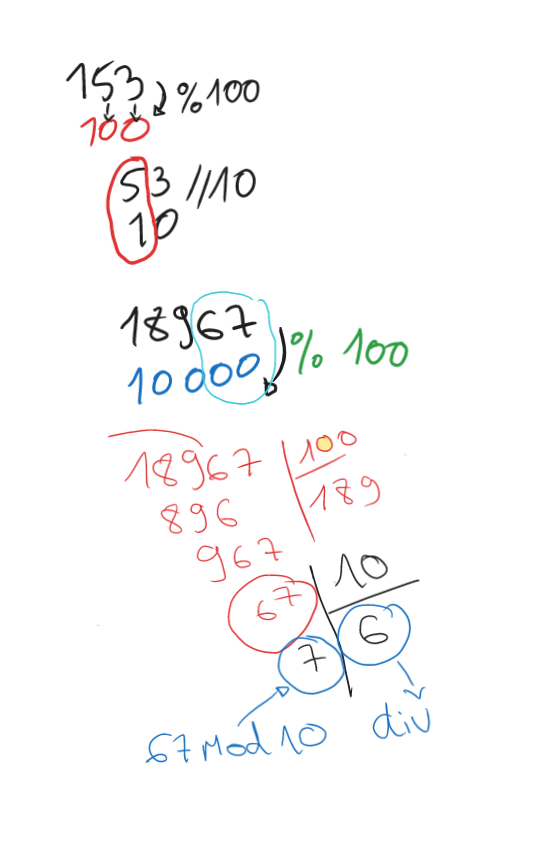 153 %100
100
53 //10
10
18967
10 000 % 100
18967 100
896 189
967
67 10
7 6
67 Mod 10 div